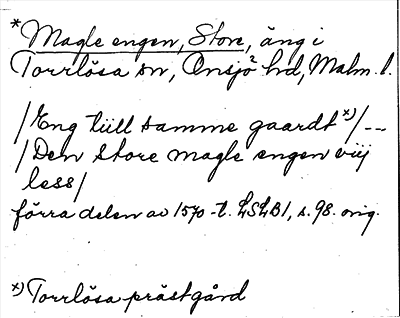 * Magle engen, Store, äng i
Torrlösa sn, Onsjö hd, Malm. l.
/Eng tüll samme gaardt x)/--
/Den store magle engen viij
less/
förra delen av 1570-t. LSLB1, s. 98. orig.
x) Torrlösa prästgård